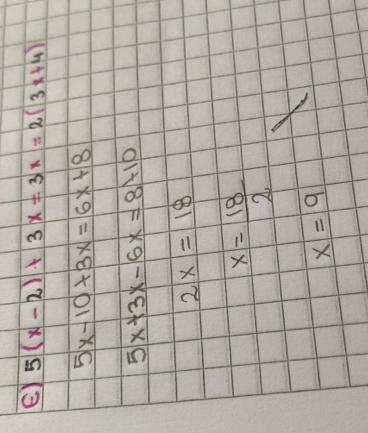 e) 5(x-2)+3x=3x=2(3x+4)
5x-10+3x=6x+8
5x+3x-6x=8+10
2x=18
x=18/2
x=9